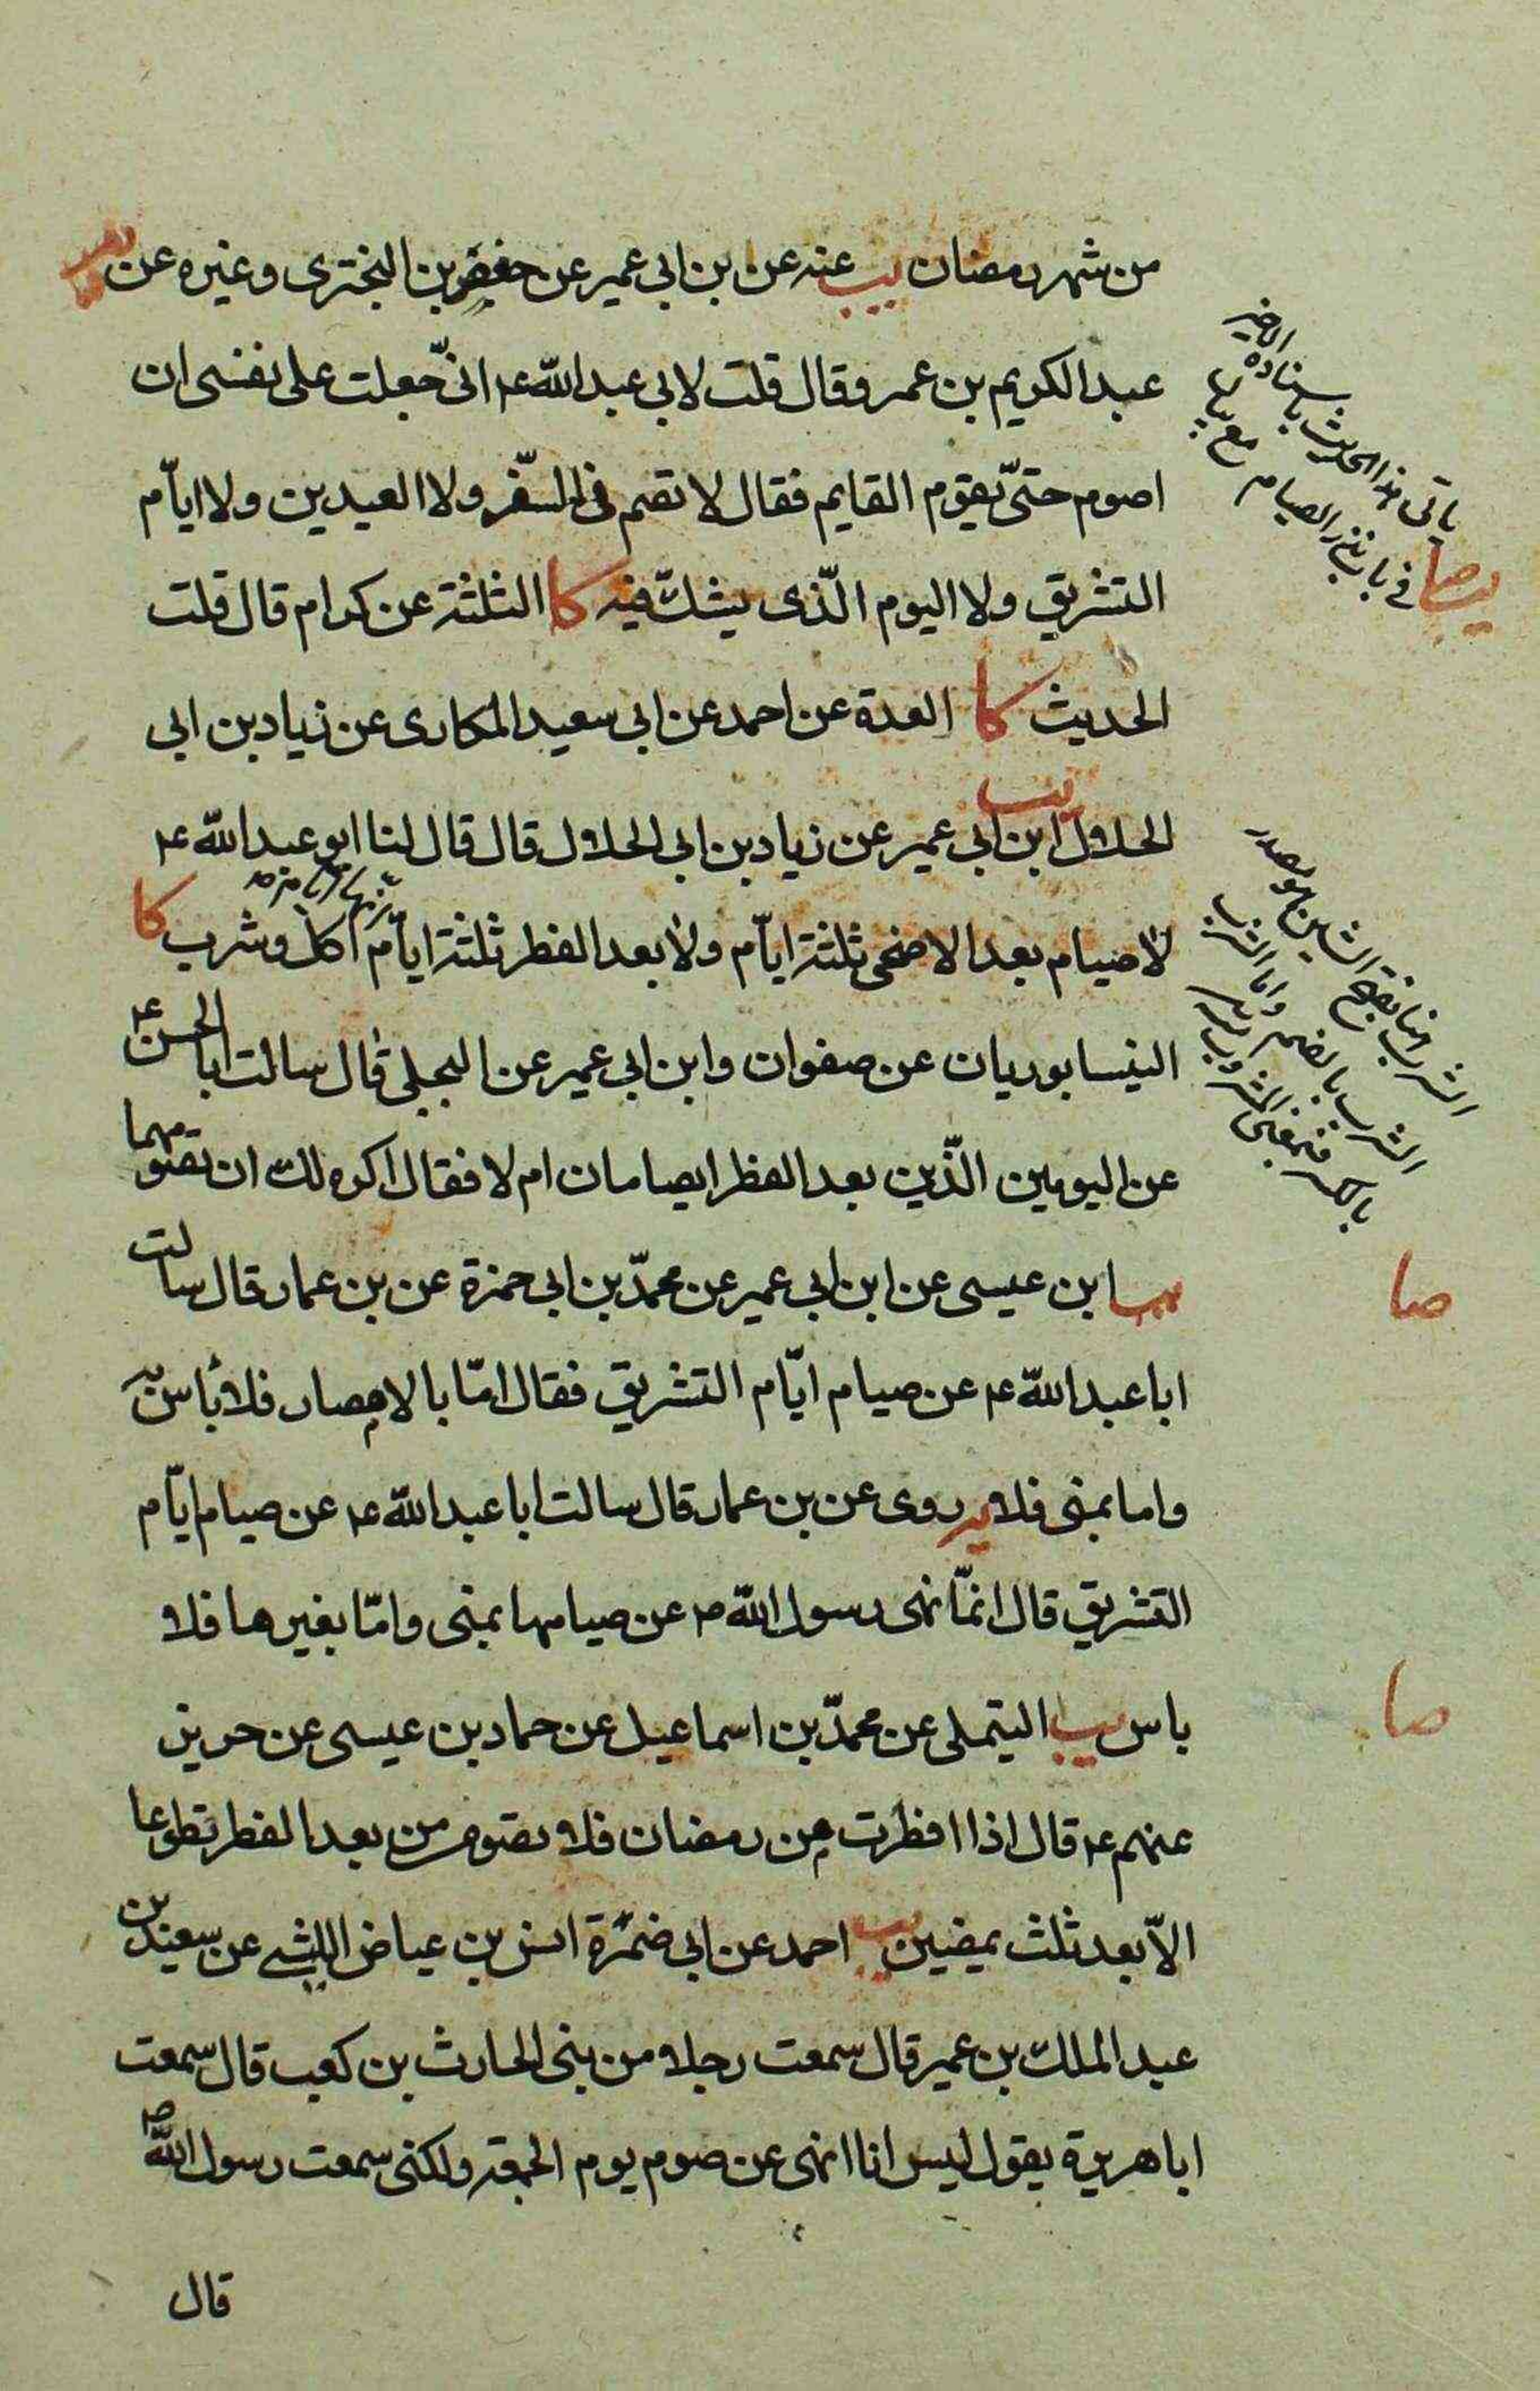 من شهر رمضان يب عنه عن بن ابى عمير عن حفص بن البخترى وغيره عن
عبد الكريم بن عمرو قال قلت لابى عبد الله ع انّى جعلت على نفسى ان
اصوم حتّى يقوم القايم فقال لا تصم فى السّفر ولا العيدين ولا ايّام
التشريق ولا اليوم الّذى يشكّ فيه كا الثلثة عن كرام قال قلت
الحديث كا العدة عن احمد عن ابى سعيد المكارى عن زياد بن ابى
الحلال يب ابن ابى عمير عن زياد بن ابى الحلال قال قال لنا ابو عبد الله ع
لا صيام بعد الاضحى ثلثة ايّام ولا بعد الفطر ثلثة ايّام انّها ايّام اكل وشرب كا
النيسابوريان عن صفوان وابن ابى عمير عن البجلى قال سالت ابا الحسن ع
عن اليومين الّذين بعد الفطر ايصامان ام لا فقال اكره لك ان تصومهما
يب ابن عيسى عن ابن ابى عمير عن محمّد بن ابى حمزة عن بن عمار قال سالت
ابا عبد الله ع عن صيام ايّام التشريق فقال امّا بالامصار فلا بأس به
واما بمنى فلا يه روى عن بن عمار قال سالت ابا عبد الله ع عن صيام ايّام
التشريق قال انّما نهى رسول الله ص عن صيامها بمنى وامّا بغيرها فلا
باس يب التيملى عن محمّد بن اسماعيل عن حماد بن عيسى عن حريز
عنهم ع قال اذا افطرت من رمضان فلا تصومن بعد الفطر تطوعا
الاّ بعد ثلث يمضين يب احمد عن ابى ضمرة انس بن عياض الليثى عن سعيد بن
عبد الملك بن عمير قال سمعت رجلا من بنى الحارث بن كعب قال سمعت
ابا هريرة يقول ليس انا انهى عن صوم يوم الجمعة ولكنى سمعت رسول الله ص
قال
يأتى هذا الحديث باسناده الاخير
فى باب نذر الصيام مع
الشرب هنا بفتح الشين هو مصدر
الشرب بالضم واما الشرب
بالكسر فهو
صا
صا